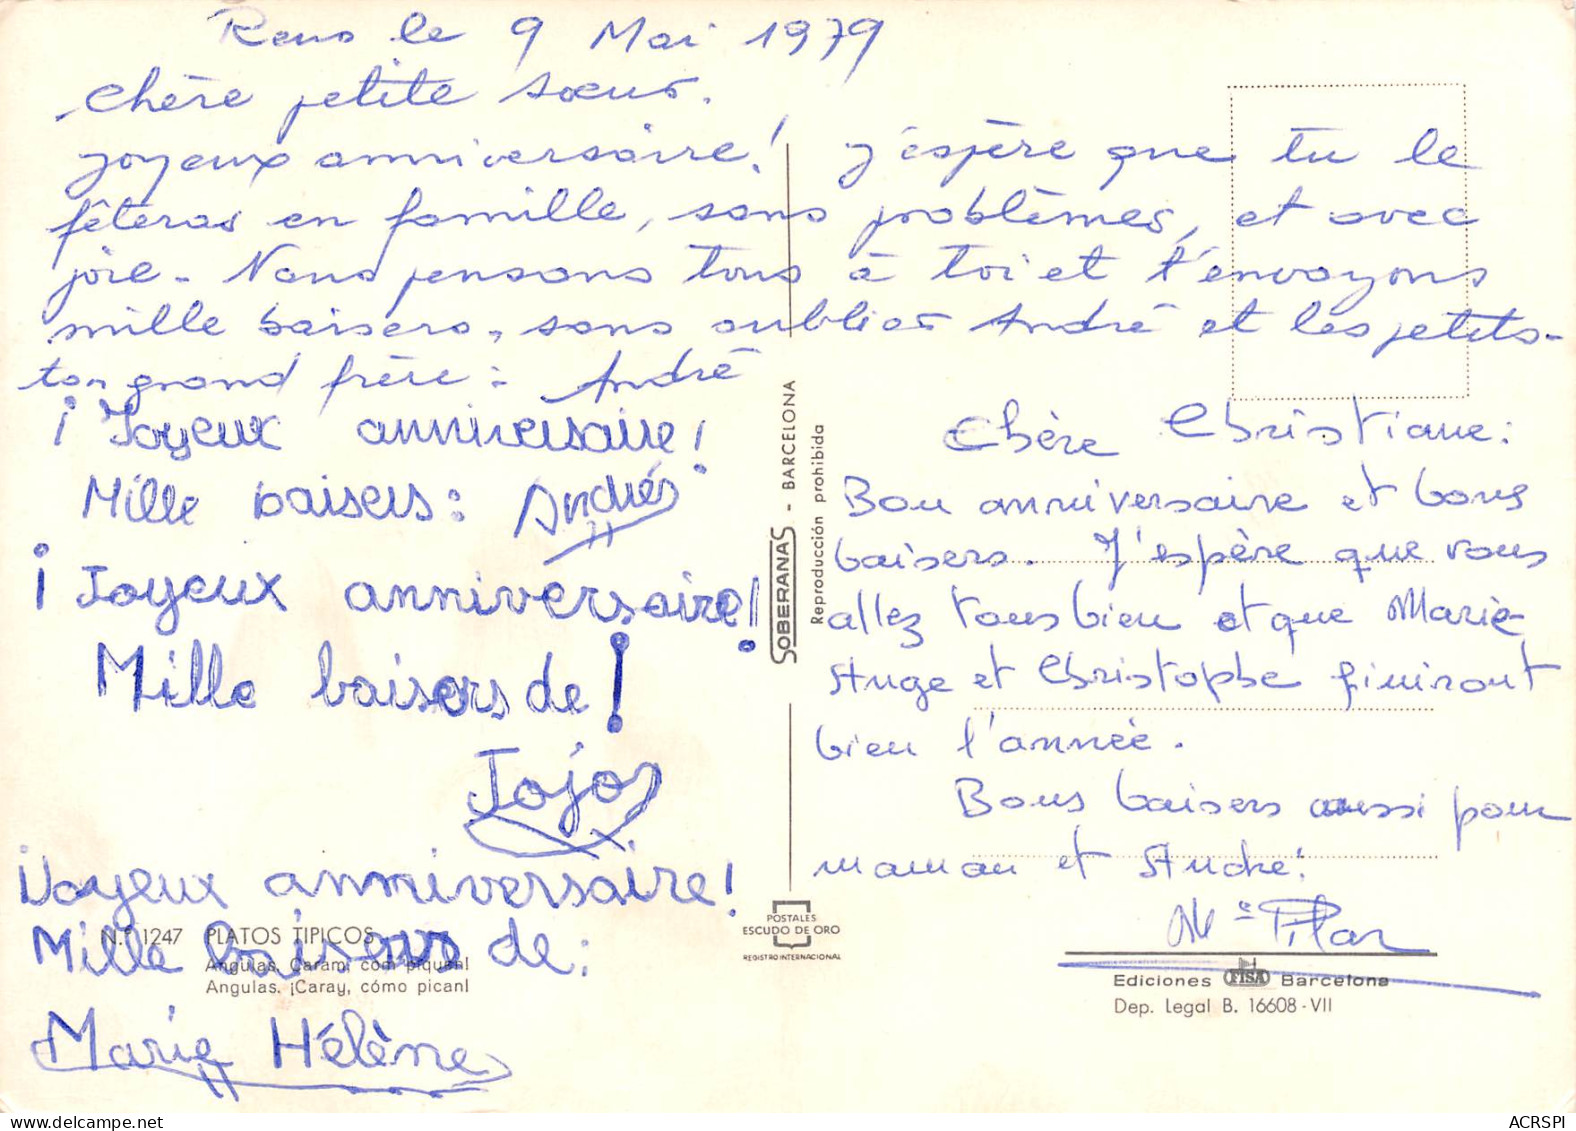 Reus le 9 Mai 1979
Chère petite sœur.
joyeux anniversaire! j'espère que tu le
fêteras en famille, sans problèmes, et avec
joie - Nous pensons tous à toi et t'envoyons
mille baisers, sans oublier André et les petits -
ton grand frère: André
¡ Joyeux anniversaire!
Mille baisers: Andrés
¡ Joyeux anniversaire!
Mille baisers de!
Jojo
¡Joyeux anniversaire!
Mille baisers de:
Marie Hélène
Chère Christiane:
Bon anniversaire et bons
baisers. J'espère que vous
allez tous bien et que Marie
Ange et Christophe finiront
bien l'année.
Bons baisers aussi pour
maman et André!
Mª Pilar
SOBERANAS - BARCELONA
Reproducción prohibida
N.º 1247 PLATOS TIPICOS
Angulas. Caram, com piquen!
Angulas. ¡Caray, cómo pican!
POSTALES
ESCUDO DE ORO
REGISTRO INTERNACIONAL
Ediciones FISA Barcelona
Dep. Legal B. 16608-VII
ACRSPI